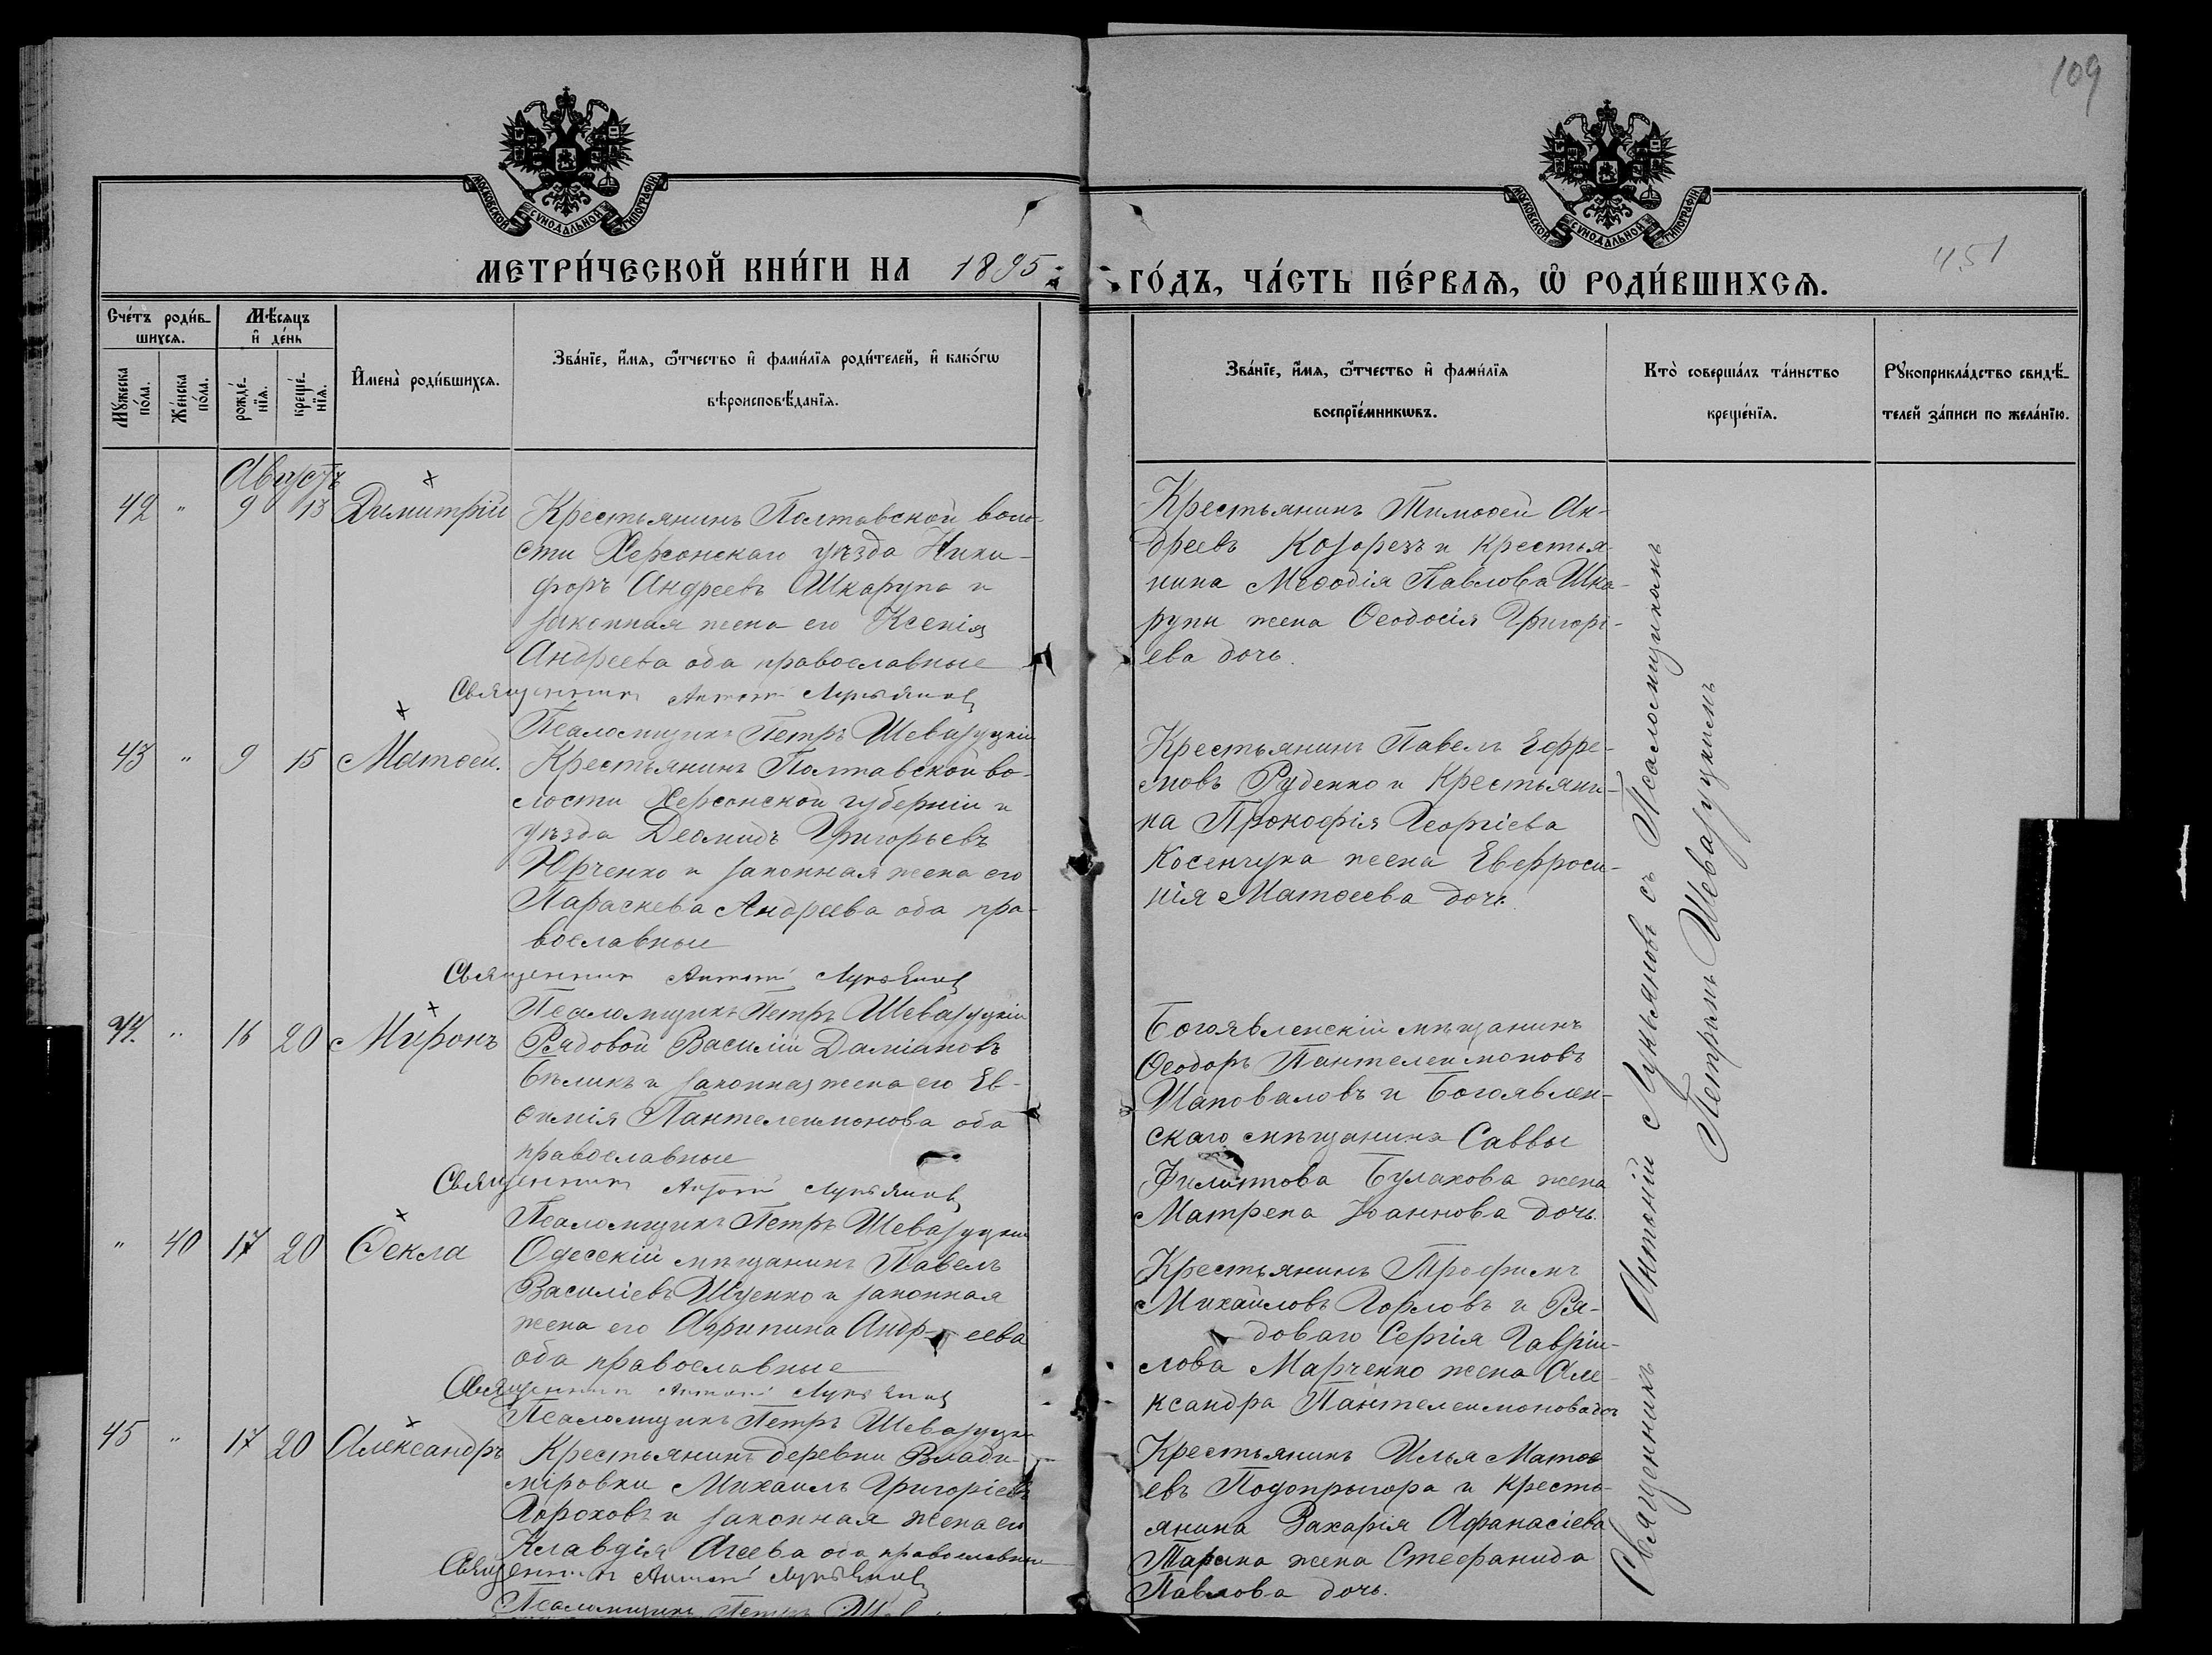 109
МОСКОВСКОЙ СѴНОДАЛЬНОЙ ТИПОГРАФІИ
МОСКОВСКОЙ СѴНОДАЛЬНОЙ ТИПОГРАФІИ
МЕТРИ́ЧЕСКОЙ КНИ́ГИ НА 1895
ГО́ДЪ, ЧА́СТЬ ПЕ́РВАѦ, Ѡ҆ РОДИ́ВШИХСѦ.
451
Сче́тъ роди́в-
шихсѧ.
Мѣ́сѧцъ
и҆ де́нь
Мꙋ́жеска
по́ла.
Же́нска
по́ла.
рожде́-
нїѧ.
креще́-
нїѧ.
И҆мена̀ роди́вшихсѧ.
Зва́нїе, и҆́мѧ, ѻ҆́тчество и҆ фами́лїѧ роди́телей, и҆ како́гѡ
вѣроисповѣ́данїѧ.
Зва́нїе, и҆́мѧ, ѻ҆́тчество и҆ фами́лїѧ
воспрїе́мникѡвъ.
Кто̀ соверша́лъ та́инство
креще́нїѧ.
Рꙋкоприкла́дство свидѣ́-
телей за́писи по жела́нїю.
Августъ
42 " 9 13 Димитрій
Крестьянинъ Полтавской воло-
сти Херсонскаго уѣзда Ники-
форъ Андреевъ Шкарупа и
законная жена его Ксенія
Андреева оба православные
Священникъ Антоній Лукьяновъ
Псаломщикъ Петръ Шевазуцкій
Крестьянинъ Тимоѳей Ан-
дреевъ Козорезъ и крестья-
нина Меѳодія Павлова Шка-
рупы жена Ѳеодосія Григорі-
ева дочь.
43 " 9 15 Матѳей.
Крестьянинъ Полтавской во-
лости Херсонской губерніи и
уѣзда Деомидъ Григорьевъ
Юрченко и законная жена его
Параскева Андреева оба пра-
вославные
Священникъ Антоній Лукьяновъ
Псаломщикъ Петръ Шевазуцкій
Крестьянинъ Павелъ Ефре-
мовъ Руденко и Крестьяни-
на Прокофія Георгіева
Косенчука жена Евфроси-
нія Матѳеева дочь.
44. " 16 20 Миронъ
Рядовой Василій Даміановъ
Бѣликъ и законная жена его Ев-
ѳимія Пантелеимонова оба
православные
Священникъ Антоній Лукьяновъ
Псаломщикъ Петръ Шевазуцкій
Богоявленскій мѣщанинъ
Ѳеодоръ Пантелеимоновъ
Шаповаловъ и Богоявлен-
скаго мѣщанина Саввы
Филиппова Булахова жена
Матрена Іоаннова дочь.
" 40 17 20 Ѳекла
Одесскій мѣщанинъ Павелъ
Василіевъ и законная
жена его Агрипина Андреева
оба православные
Священникъ Антоній Лукьяновъ
Псаломщикъ Петръ Шевазуцкій
Крестьянинъ Трофимъ
Михайловъ Горловъ и Ря-
доваго Сергія Гаврии-
лова Марченко жена Але-
ксандра Пантелеимонова доч
45 " 17 20 Александръ
Крестьянинъ деревни Влади-
міровки Михаилъ Григоріевъ
Гороховъ и законная жена его
Клавдія Агеева оба православные
Священникъ Антоній Лукьяновъ
Псаломщикъ Петръ
Крестьянинъ Илья Матѳе
евъ Подопрыгора и кресть-
янина Захарія Афанасіева
Тарана жена Стефанида
Павлова дочь.
Священникъ Антоній Лукьяновъ съ Псаломщикомъ
Петромъ Шевазуцкимъ